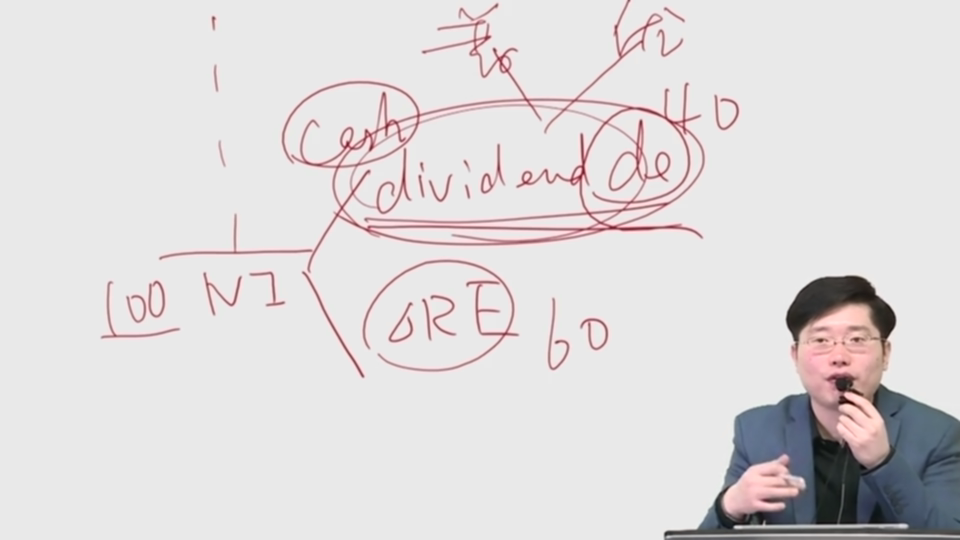 cash
dividend de 40
100 NI
ΔRE 60